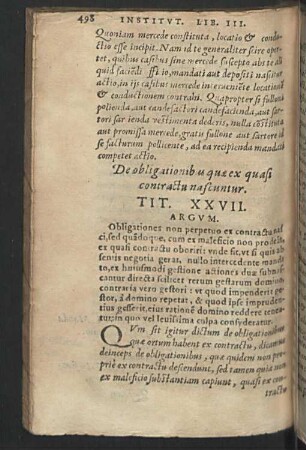 498 INSTITVT. LIB. III.
Quoniam mercede constituta, locatio & condu-
ctio esse incipit. Nam id te generaliter scire opor-
tet, quibus casibus sine mercede suscepto abs te ali
quid faciēdi officio, mandati aut depositi nascitur
actio, in ijs casibus mercede interueniēte locationē
& conductionem contrahi. Quapropter si fulloni
polienda, aut candefactori candefacienda, aut sar-
tori sarcienda vestimenta dederis, nulla cōstituta
aut promissa mercede, gratis fullone aut sartore id
se facturum pollicente, ad ea recipienda mandati
competet actio.
De obligationib⁹ quæ ex quasi
contractu nascuntur.
TIT. XXVII.
ARGVM.
Obligationes non perpetuo ex contractu nas
ci, sed quādoque, cum ex maleficio non prodeāt,
ex quasi contractu oboriri: vnde fit, vt si quis ab
sentis negotia gerat, nullo intercedente manda
to, ex huiusmodi gestione actiones duæ subnas
cantur directa scilicet rerum gestarum domino,
contraria vero gestori: vt quod impenderit ge-
stor, à domino repetat, & quod ipse impruden-
tius gesserit, eius rationē domino reddere tenea
tur, in quo vel leuissima culpa consyderatur.
QVum sit igitur dictum de obligationibus
quæ ortum habent ex contractu, dicamus
deinceps de obligationibus, quæ quidem non pro
prie ex contractu descendunt, sed tamen quia non
ex maleficio substantiam capiunt, quasi ex con-
tractu